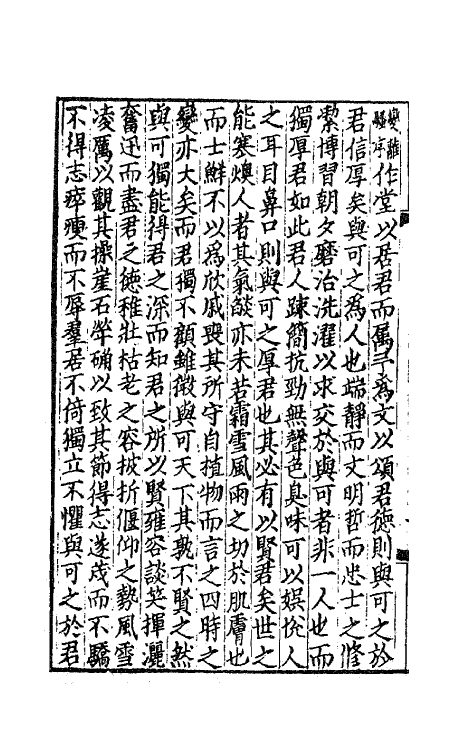 變離騷序作堂以居君而属予為文以頌君德則與可之於
君信厚矣與可之為人也端靜而文明哲而忠士之修
潔博習朝夕磨治洗濯以求交於與可者非一人也而
獨厚君如此君人踈簡抗勁無聲色臭味可以娯悅人
之耳目鼻口則與可之厚君也其必有以賢君矣世之
能寒燠人者其氣燄亦未若霜雪風雨之切於肌膚也
而士鮮不以為欣戚喪其所守自植物而言之四時之
變亦大矣而君獨不顧雖微與可天下其孰不賢之然
與可獨能得君之深而知君之所以賢雍容談笑揮灑
奮迅而盡君之德稚壯枯老之容披折偃仰之勢風雪
凌厲以觀其操崖石犖确以致其節得志遂茂而不驕
不得志瘁瘦而不辱羣居不倚獨立不懼與可之於君